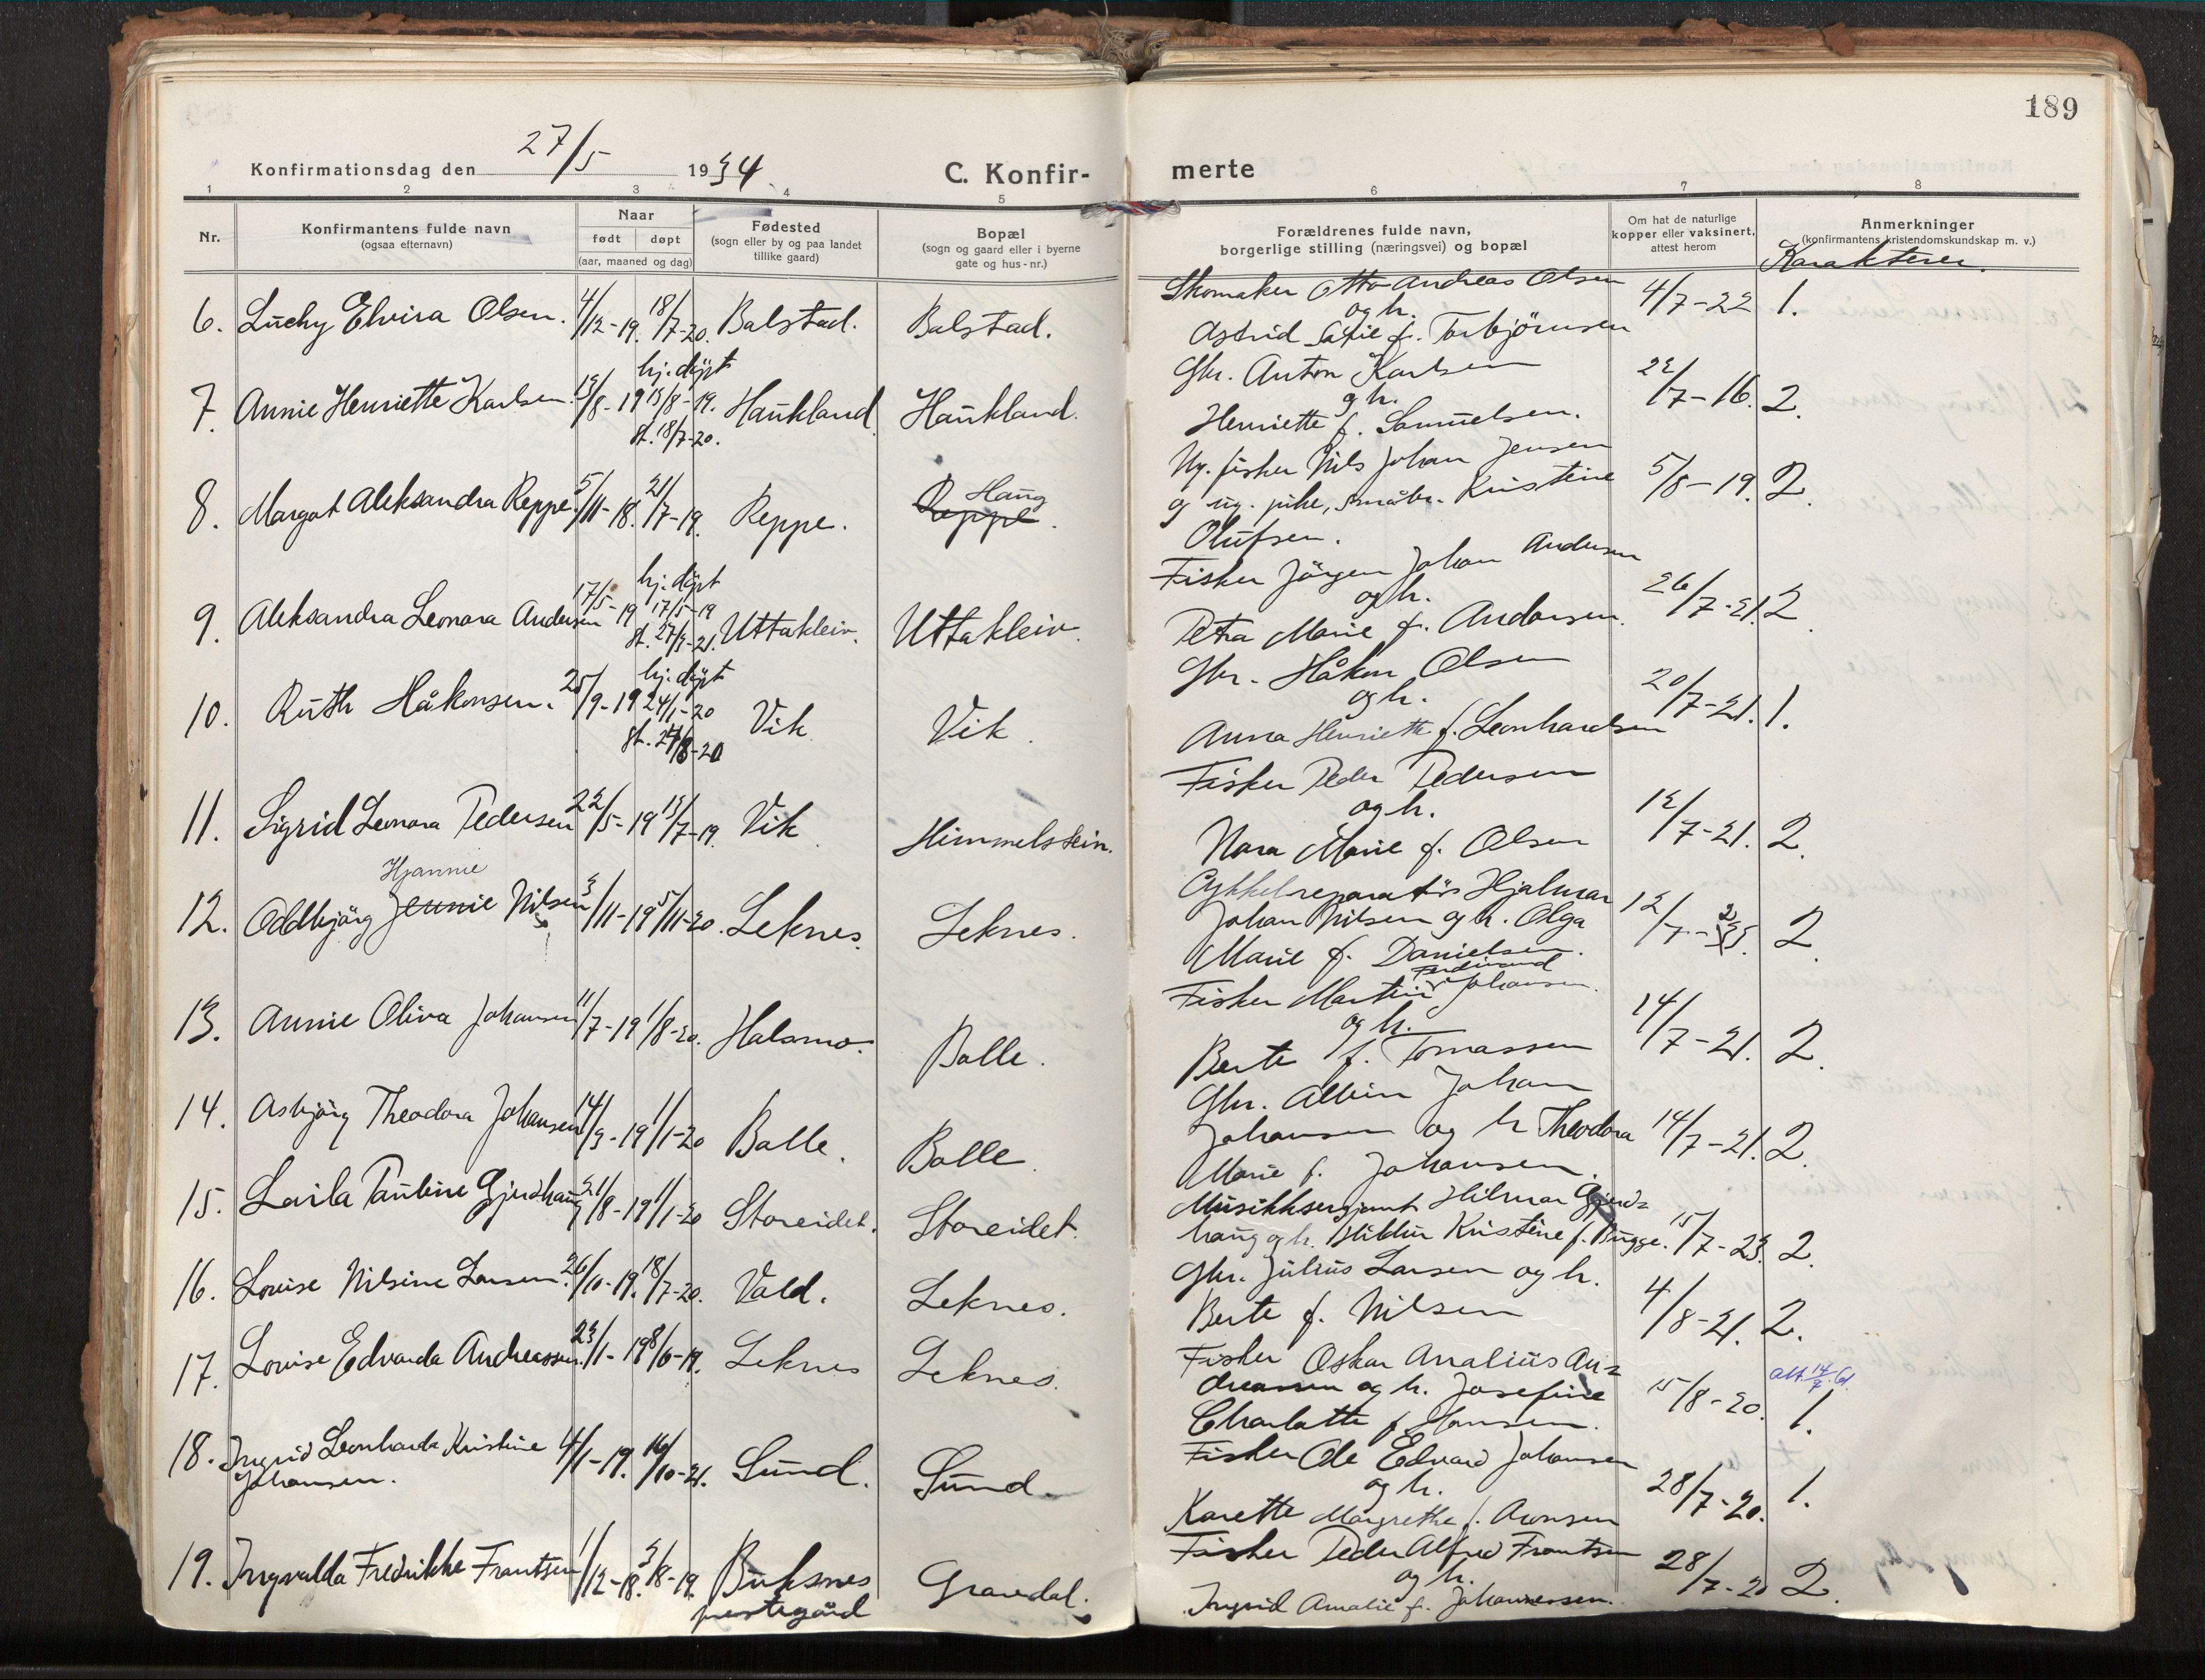 189
Konfirmationsdag den 27/5 1934
C. Konfirmerte
1 2 3 4 5 6 7 8
Nr.
Konfirmantens fulde navn
(ogsaa efternavn)
Naar
født døpt
(aar, maaned og dag)
Fødested
(sogn eller by og paa landet
tillike gaard)
Bopæl
(sogn og gaard eller i byerne
gate og hus-nr.)
Forældrenes fulde navn,
borgerlige stilling (næringsvei) og bopæl
Om hat de naturlige
kopper eller vaksinert,
attest herom
Anmerkninger
(konfirmantens kristendomskundskap m. v.)
Karakterer.
6. Luchy Elvira Olsen. 4/12-19. 18/7-20. Balstad. Balstad. Skomaker Otto Andreas Olsen
og h.
Astrid f. Torbjörnsen 4/7-22 1.
7. Annie Henriette Karlsen 13/8-19 hj. döpt
15/8-19.
st. 18/7-20. Haukland Haukland. Gbr. Anton Karlsen
og h.
Henriette f. Samuelsen. 22/7-16. 2.
8. Margot Aleksandra Reppe 5/11-18. 21/7-19. Reppe. Reppe Haug Ug. fisker Nils Johan Jensen
og ug. pike, småbr. Kristine
Olufsen. 5/8-19. 2.
9. Aleksandra Leonora Andersen 17/5-19 hj. döpt
17/5-19
st. 27/3-21. Uttakleiv. Uttakleiv. Fisker Jörgen Johan Andersen
og h.
Petra Marie f. Andersen. 26/7-21. 2.
10. Ruth Håkonsen. 25/9-19 hj. döpt
24/1-20
st. 24/8-20 Vik Vik. Gbr. Håkon Olsen
og h.
Anna Henriette f. Leonhardsen 20/7-21. 1.
11. Sigrid Leonora Pedersen 22/5-19 13/7-19. Vik Himmelstein. Fisker Peder Pedersen
og h.
Nora Marie f. Olsen 12/7-21. 2.
Hjannie
12. Oddbjörg Jennie Nilsen 3/11-19 5/11-20. Leknes. Leknes. Cykkelreparatör Hjalmar
Johan Nilsen og h. Olga
Marie f. Danielsen. 12/7- 2.
13. Annie Oliva Johansen 11/7-19 1/8-20. Halsmo. Balle. Fisker Martin Ferdinand Johansen.
og h.
Berte f. Tomassen 14/7-21. 2.
14. Asbjörg Theodora Johansen 14/9-19 1/1-20 Balle. Balle. Gbr. Albin Johan
Johansen og h Theodora
Marie f. Johansen. 14/7-21. 2.
15. Laila Pauline Gjerdhaug 21/8-19 1/1-20 Storeidet. Storeidet. Musikksersjant Hilmar Gjerd=
haug og h. Kristine f. Bugge. 15/7-23. 2.
16. Lovise Nilsine Larsen. 26/10-19. 18/7-20. Vold. Leknes. Gbr. Julius Larsen og h.
Berte f. Nilsen 4/8-21. 2.
17. Lovise Edvarda Andreassen. 23/1-19 8/6-19. Leknes Leknes. Fisker Oskar Analius An=
dreassen og h. Josefine
Charlotte f. Hansen. 15/8-20. att. 14/7-61. 1.
18. Ingrid Leonharda Kristine
Johansen. 4/1-19. 16/10-21. Sund. Sund. Fisker Ole Edvard Johansen
og h.
Karette Margrethe f. Aronsen 28/7-20. 1.
19. Ingvalda Fredrikke Frantsen 1/12-18. 3/8-19. Buksnes
prestegård Gravdal. Fisker Peder Alfred Frantsen
og h.
Ingrid Amalie f. Johannessen. 28/7-20 2.